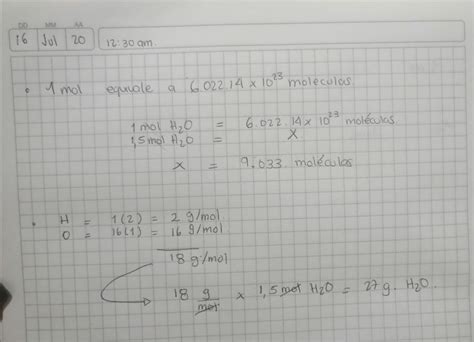 DD MM AA
16 Jul 20 12:30 am.
• 1 mol equivale a 6.022.14 x 10²³ moléculas.
1 mol H₂O = 6.022.14 x 10²³ moléculas.
1,5 mol H₂O = X
x = 9.033 moléculas
• H = 1(2) = 2 g/mol.
O = 16(1) = 16 g/mol.
18 g/mol
18 g/mol x 1,5 mol H₂O = 27 g. H₂O.